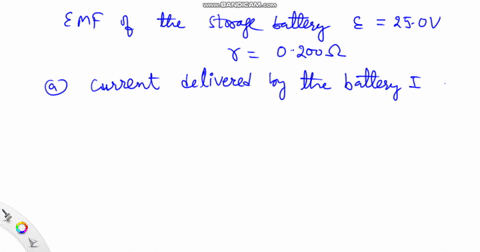 WWW.BANDICAM.COM
EMF of the storage battery ε = 25.0V
r = 0.200Ω
(a) current delivered by the battery I